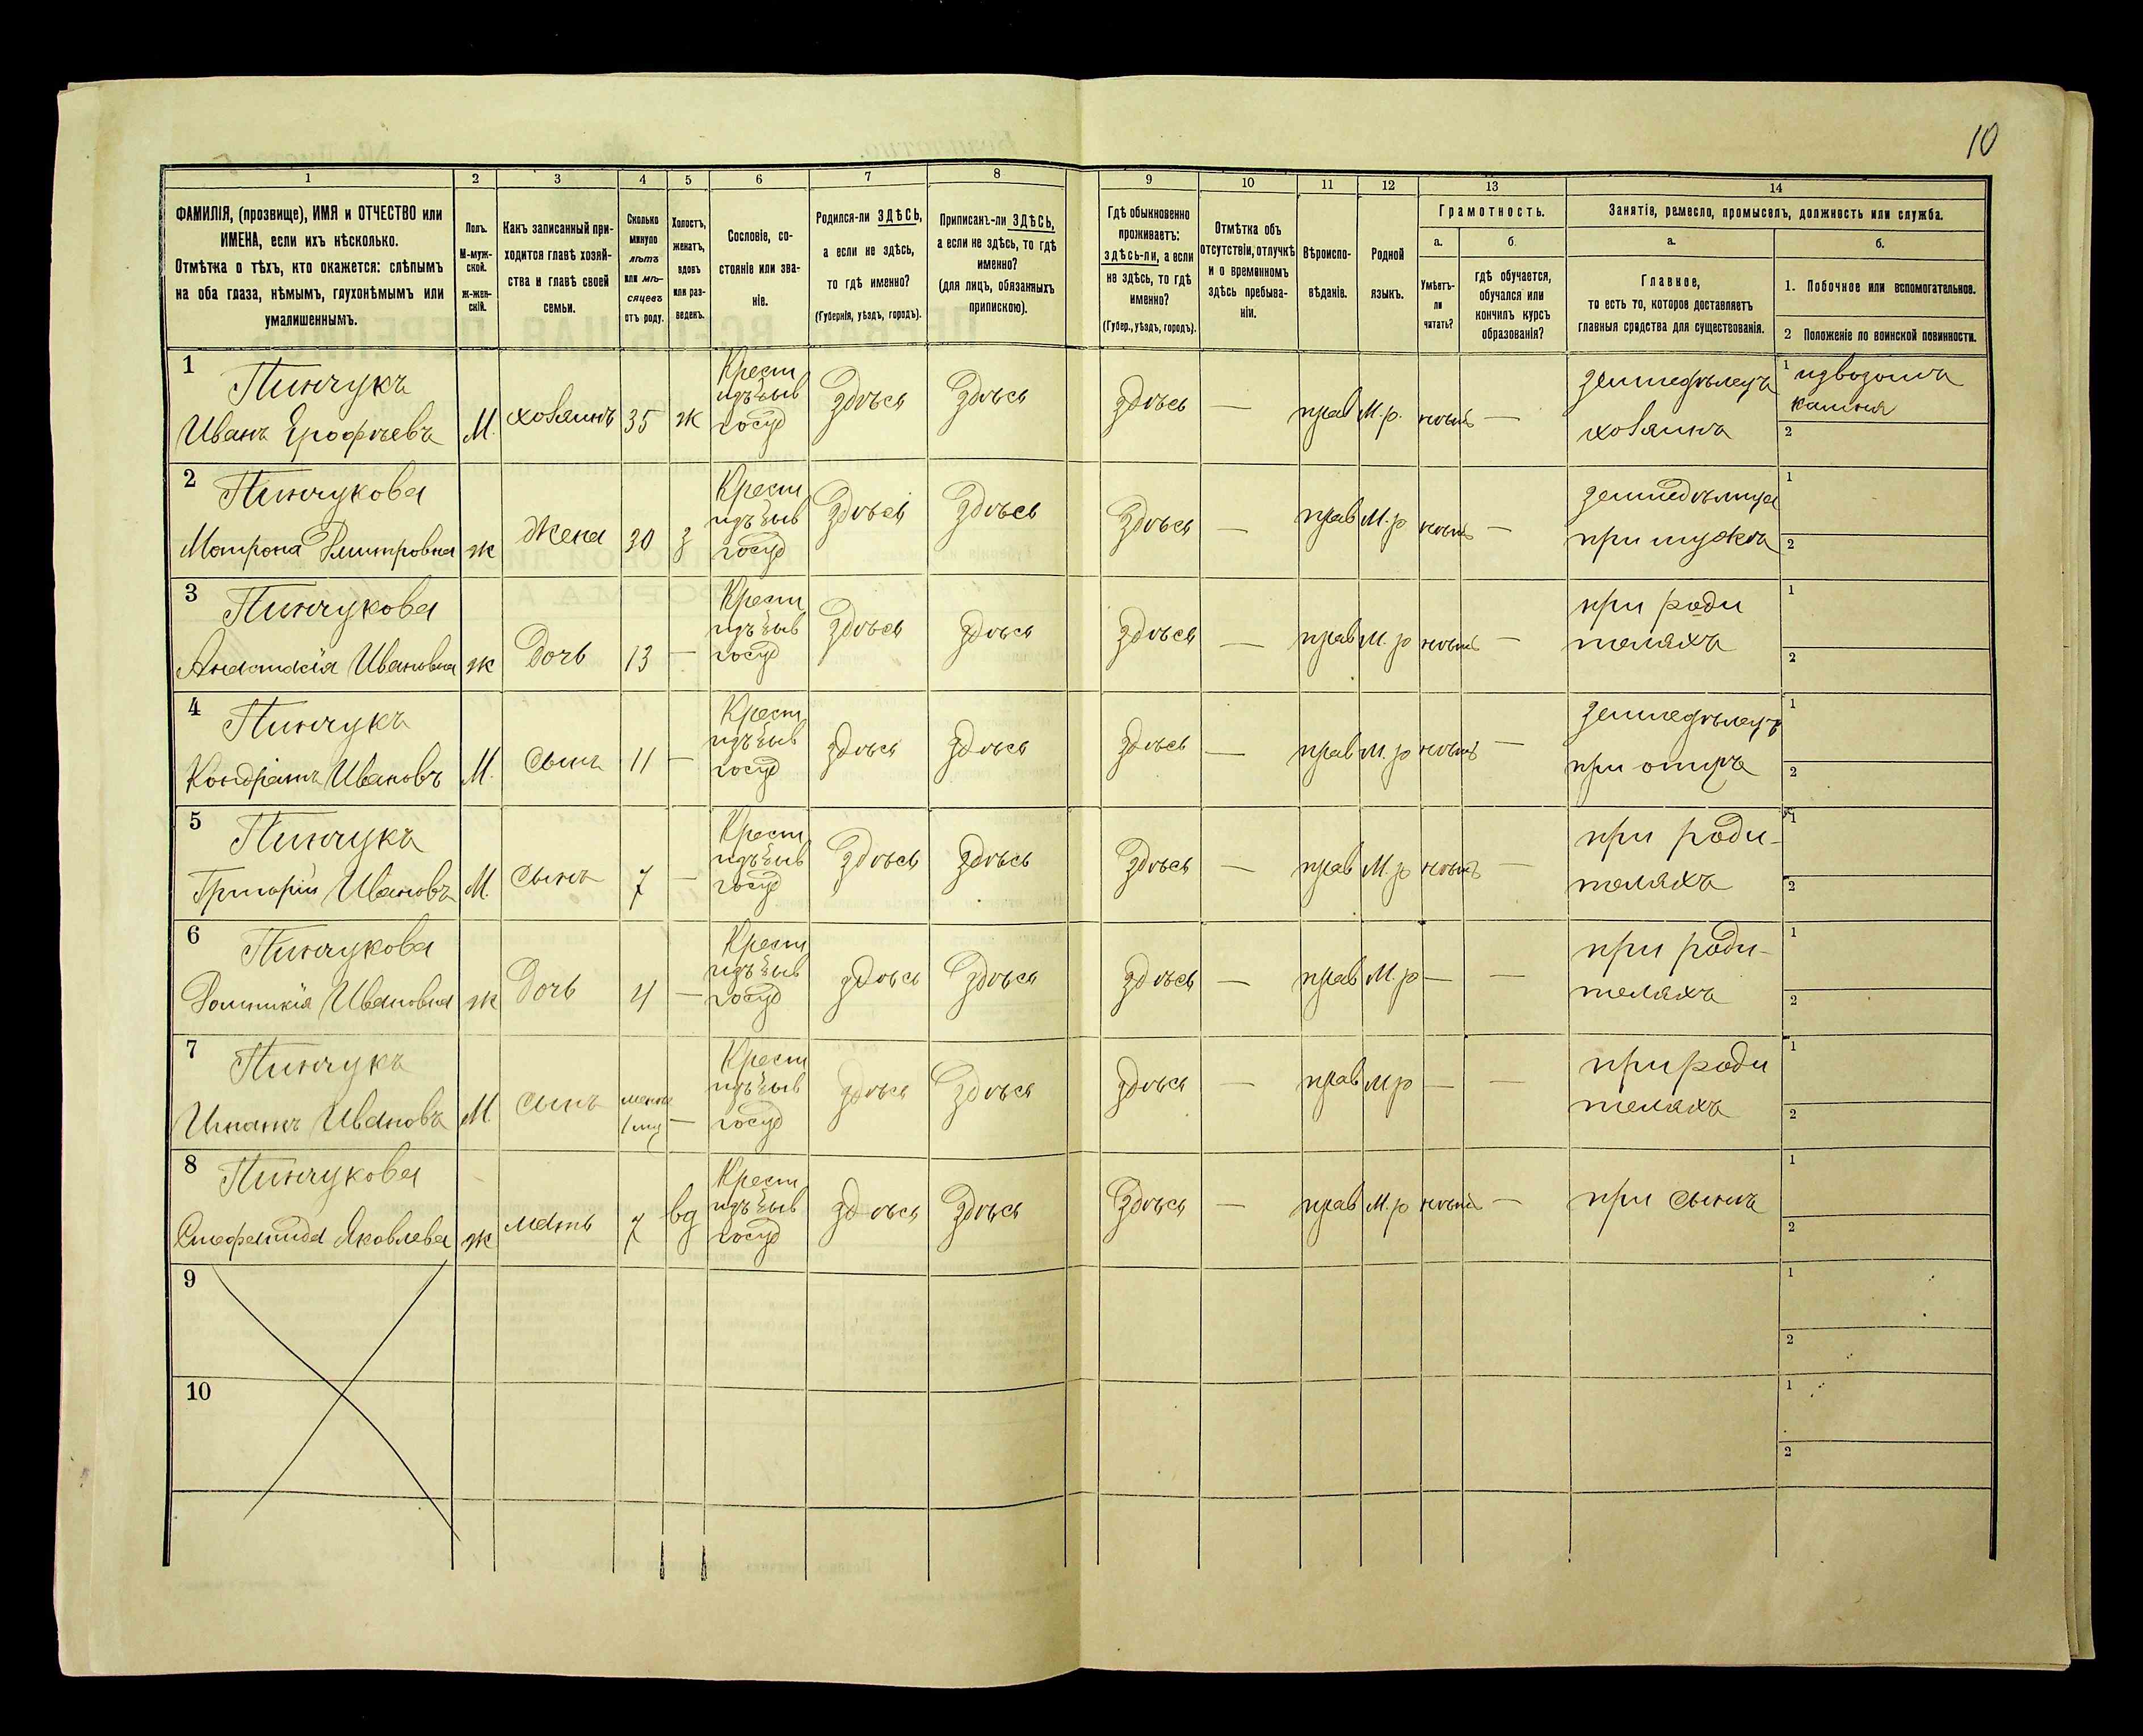 10
1
2
3
4
5
6
7
8
9
10
11
12
13
14
ФАМИЛІЯ, (прозвище), ИМЯ и ОТЧЕСТВО или
ИМЕНА, если ихъ нѣсколько.
Отмѣтка о тѣхъ, кто окажется: слѣпымъ
на оба глаза, нѣмымъ, глухонѣмымъ или
умалишеннымъ.
Полъ.
М-муж-
ской.
ж-жен-
скій.
Какъ записанный при-
ходится главѣ хозяй-
ства и главѣ своей
семьи.
Сколько
минуло
лѣтъ
или мѣ-
сяцевъ
отъ роду.
Холостъ,
женатъ,
вдовъ
или раз-
веденъ.
Сословіе, со-
стояніе или зва-
ніе.
Родился-ли ЗДѢСЬ,
а если не здѣсь,
то гдѣ именно?
(Губернія, уѣздъ, городъ).
Приписанъ-ли ЗДѢСЬ,
а если не здѣсь, то гдѣ
именно?
(для лицъ, обязанныхъ
припискою).
Гдѣ обыкновенно
проживаетъ:
здѣсь-ли, а если
не здѣсь, то гдѣ
именно?
(Губер., уѣздъ, городъ).
Отмѣтка объ
отсутствіи, отлучкѣ
и о временномъ
здѣсь пребыва-
ніи.
Вѣроиспо-
вѣданіе.
Родной
языкъ.
Грамотность.
а.
Умѣетъ-
ли
читать?
б.
гдѣ обучается,
обучался или
кончилъ курсъ
образованія?
Занятіе, ремесло, промыселъ, должность или служба.
а.
Главное,
то есть то, которое доставляетъ
главныя средства для существованія.
б.
1. Побочное или вспомогательное.
2 Положеніе по воинской повинности.
1
Пинчукъ
Иванъ Ерофѣевъ
М.
хозяинъ
35
ж
Крест
изъ быв
госуд
Здѣсь
Здѣсь
здѣсь
—
прав
М.р.
нѣтъ
—
земледѣлецъ
хозяинъ
1 извозомъ
камня
2
2
Пинчукова
Матрона Дмитровна
ж
Жена
30
з
Крест
изъ быв
госуд
Здѣсь
Здѣсь
Здѣсь
—
прав
М.р
нѣтъ
—
земледѣлица
при мужѣ
1
2
3
Пинчукова
Анастасія Ивановна
ж
Дочь
13
—
Крест
изъ быв
госуд
Здѣсь
здѣсь
здѣсь
—
прав
М.р
нѣтъ
—
при роди
теляхъ
1
2
4
Пинчукъ
Кондратъ Ивановъ
М.
Сынъ
11
—
Крест
изъ быв
госуд
здѣсь
здѣсь
здѣсь
—
прав
М.р
нѣтъ
—
земледѣлецъ
при отцѣ
1
2
5
Пинчукъ
Григорій Ивановъ
М.
Сынъ
7
—
Крест
изъ быв
госуд
Здѣсь
здѣсь
Здѣсь
—
прав
М.р
нѣтъ
—
при роди-
теляхъ
1
2
6
Пинчукова
Домникія Ивановна
ж
Дочь
4
—
Крест
изъ быв
госуд
здѣсь
Здѣсь
здѣсь
—
прав
М.р
—
—
при роди-
теляхъ
1
2
7
Пинчукъ
Игнатъ Ивановъ
М.
Сынъ
менѣе
1 мц
—
Крест
изъ быв
госуд
здѣсь
Здѣсь
здѣсь
—
прав
мр
—
—
при роди
теляхъ
1
2
8
Пинчукова
Яковлева
ж
мать
вд
Крест
изъ быв
госуд
здѣсь
Здѣсь
Здѣсь
—
прав
М.р
нѣтъ
—
при сынѣ
1
2
9
1
2
10
1
2